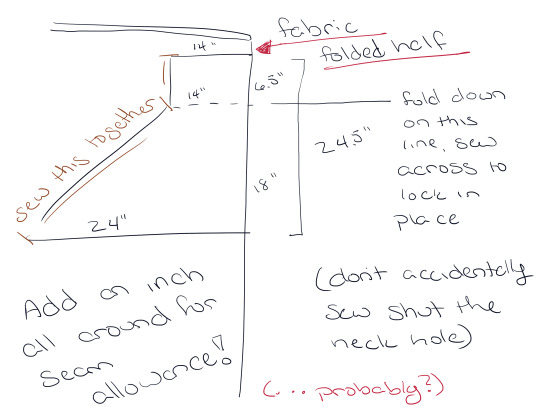 fabric
folded half
14"
6.5"
14"
fold down
on this
line, sew
across to
lock in
place
24.5"
sew this together
18"
24"
Add an inch
all around for
seam
allowance!
(don't accidentally
sew shut the
neck hole)
(... probably?)